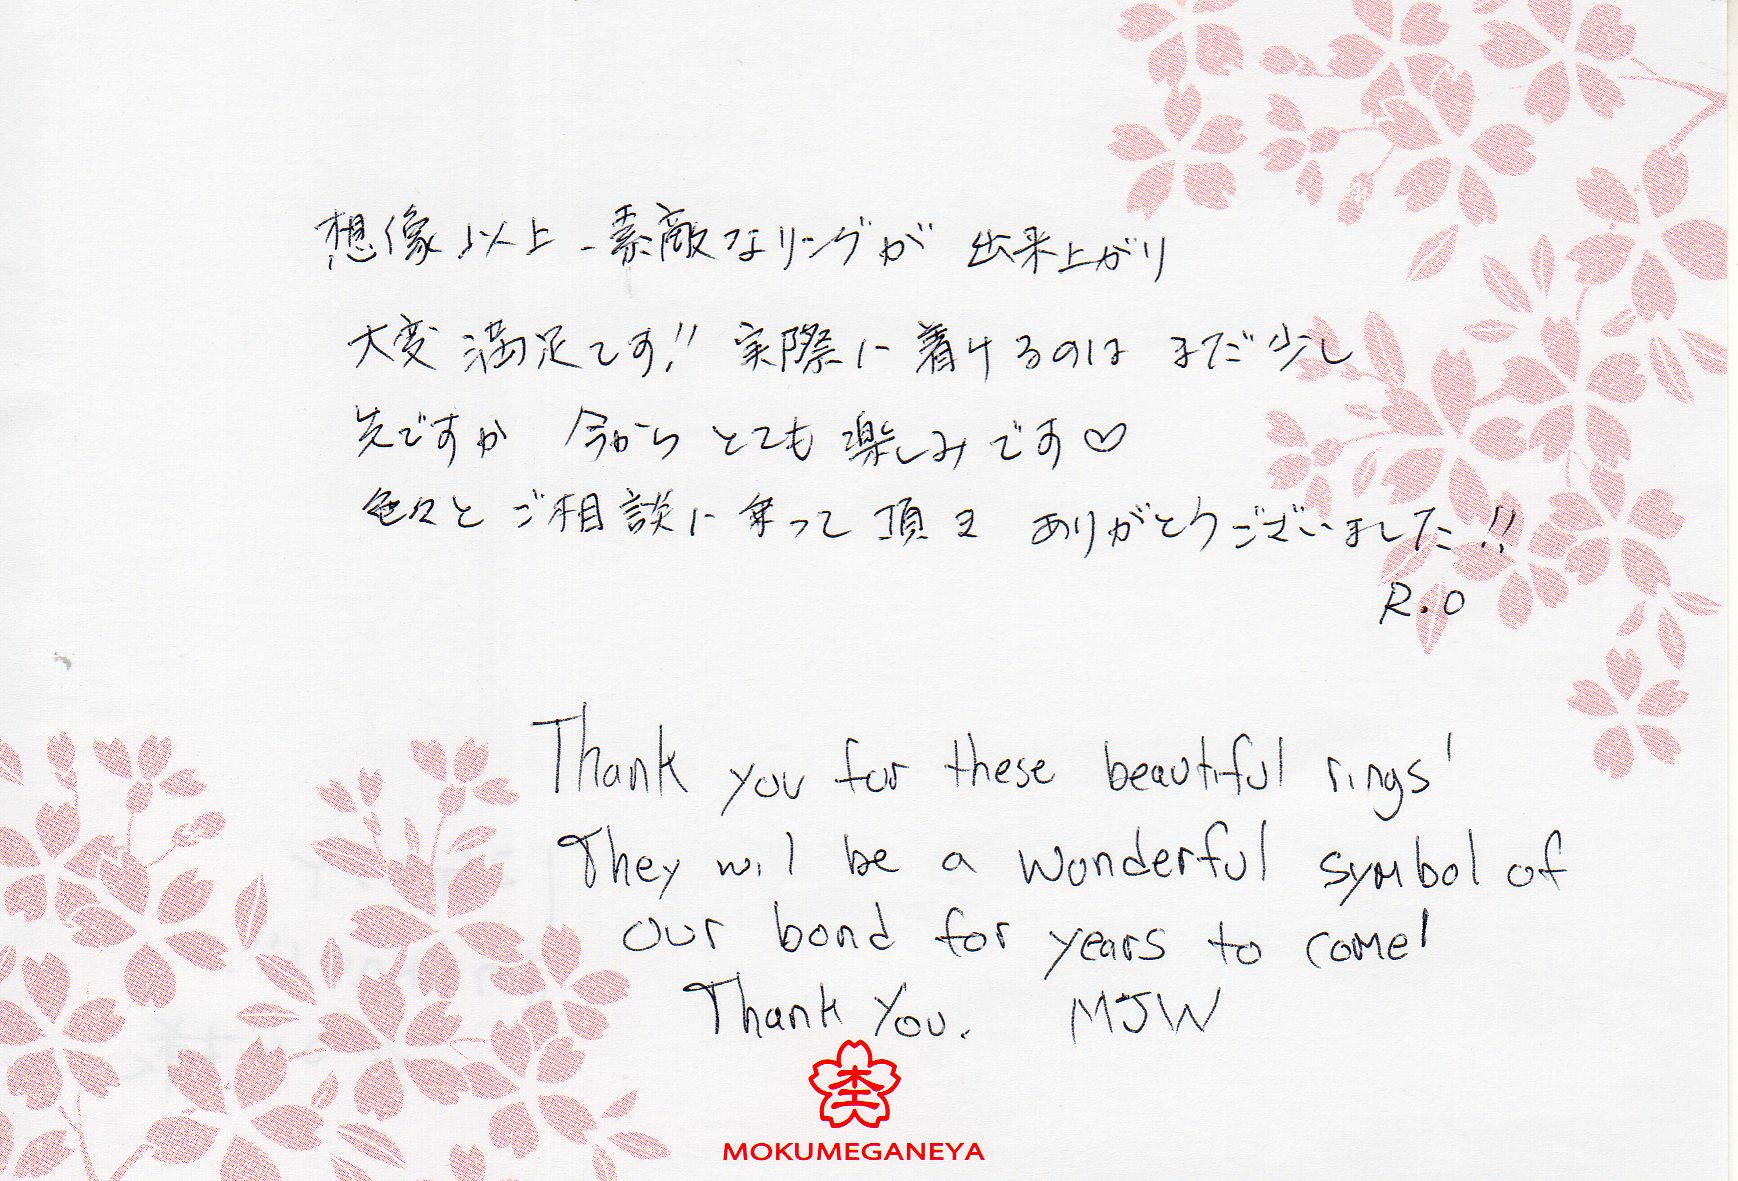 想像以上、素敵なリングが 出来上がり
大変 満足です!! 実際に着けるのは まだ少し
先ですが 今から とても 楽しみです♡
色々と ご相談に乗って 頂き ありがとうございました!!
R.O
Thank you for these beautiful rings!
They will be a wonderful symbol of
our bond for years to come!
Thank You. MJW
MOKUMEGANEYA